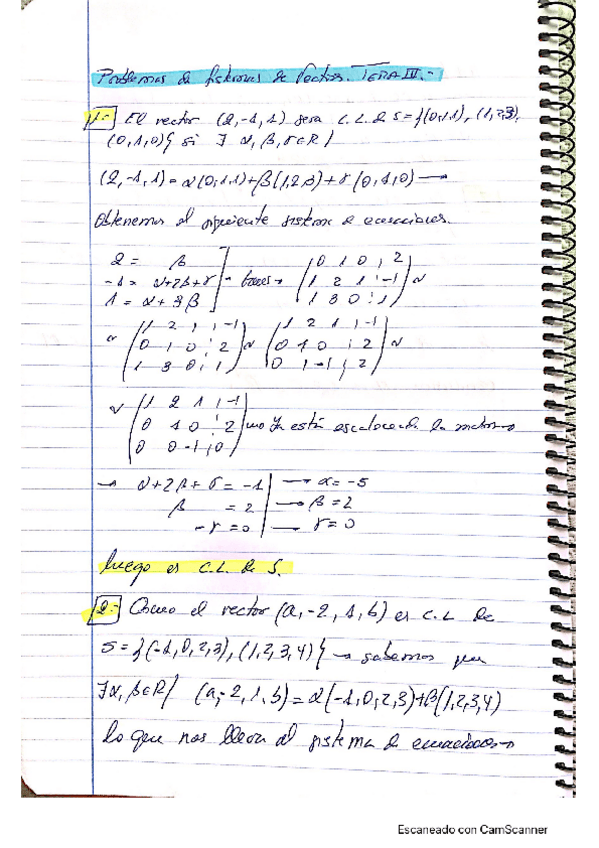 Problemas de Sistemas de Vectores. TEMA III.-
1.- El vector (2,-1,1) sera C.L. de S={(0,1,1), (1,2,3),
(0,1,0)} si ∃ α, β, γ ∈ R /
(2,-1,1) = α(0,1,1)+β(1,2,3)+γ(0,1,0) →
Obtenemos el siguiente sistema de ecuaciones.
2 = β
-1 = α+2β+γ
1 = α+3β
(0 1 0 | 2
1 2 1 | -1
1 3 0 | 1) ~
~ (1 2 1 | -1
0 1 0 | 2
1 3 0 | 1) ~ (1 2 1 | -1
0 1 0 | 2
0 1 -1 | 2) ~
~ (1 2 1 | -1
0 1 0 | 2
0 0 -1 | 0) Ya está escalonada la matriz →
→ α+2β+γ = -1 → α = -5
β = 2 → β = 2
-γ = 0 → γ = 0
luego es C.L. de S.
2.- Como el vector (a,-2,1,b) es C.L de
S = {(-1,0,2,3), (1,2,3,4)} → sabemos que
∃ α, β ∈ R / (a,-2,1,b) = α(-1,0,2,3)+β(1,2,3,4)
lo que nos lleva al sistema de ecuaciones →
Escaneado con CamScanner